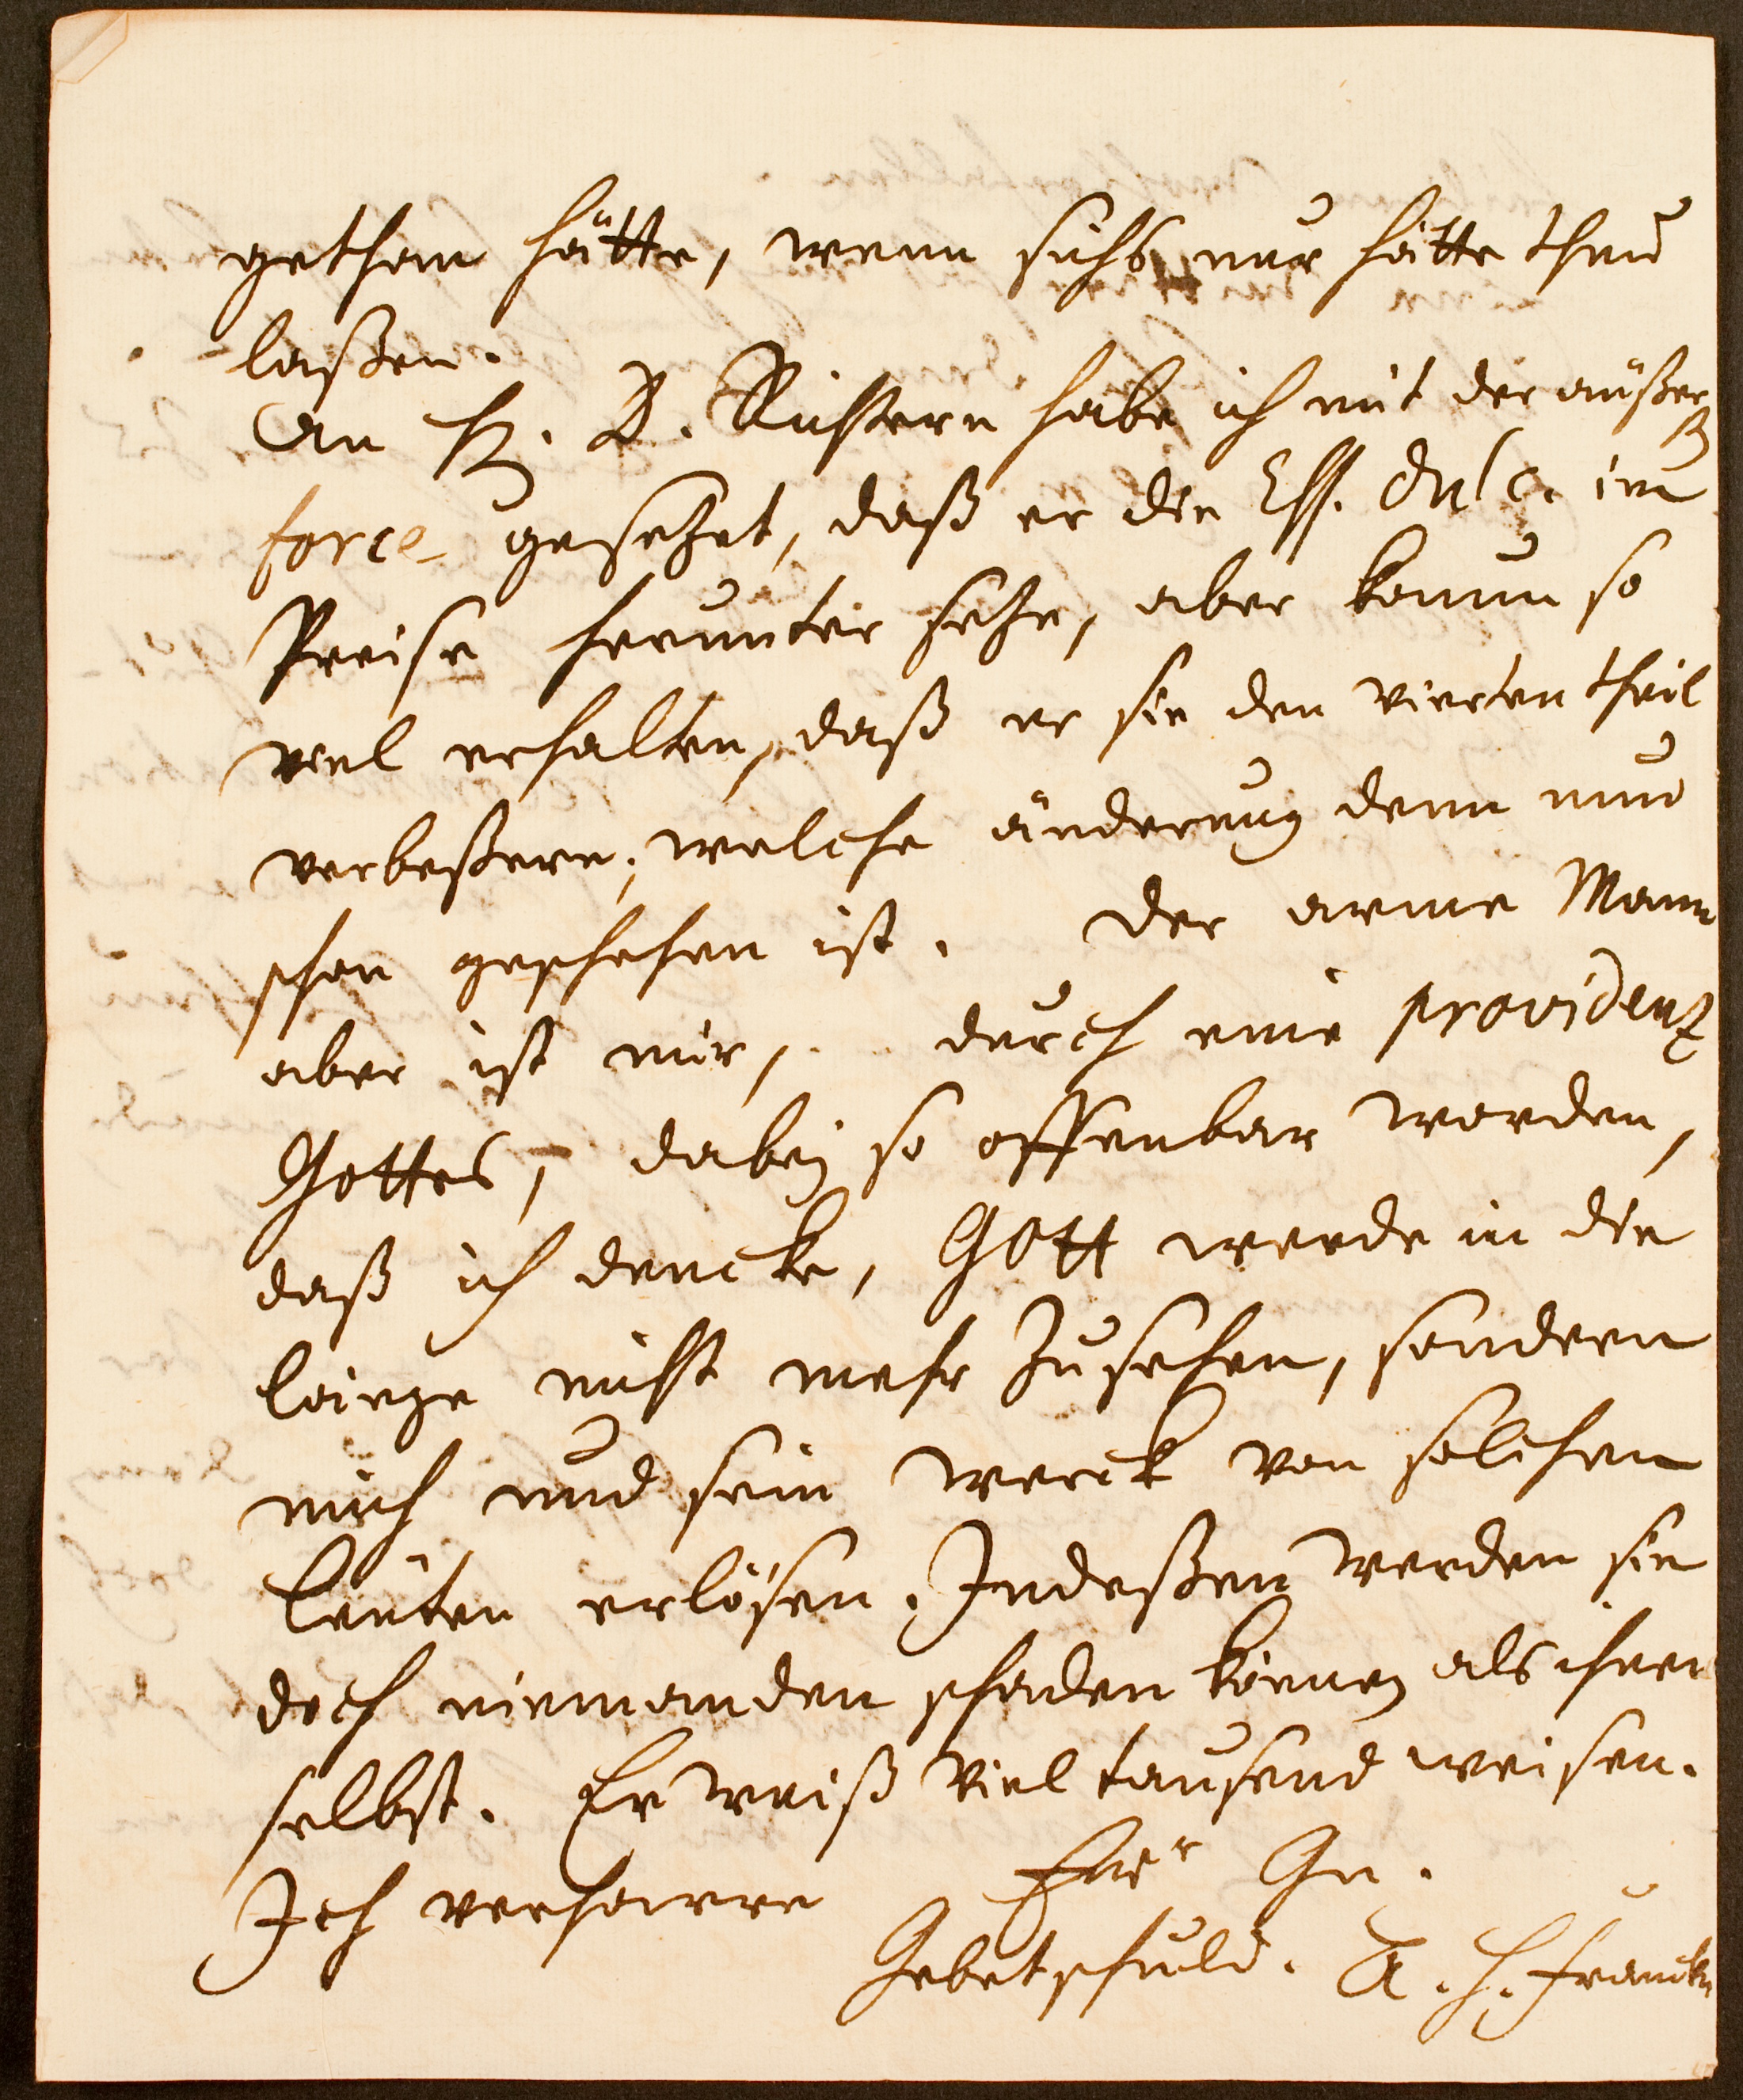 gethan hätte, wenn sichs nur hätte thun
laßen.
An H. D. Richtern habe ich mit der äußerst
force gesetzt, daß er die Ess. dulc. im
Preise herunter setze, aber kaum so
viel erhalten, daß er sie den vierten theil
verbeßere; welche änderung denn nun
schon geschehen ist. Der arme Mann
aber ist mir, durch eine providentz
Gottes, dabey so offenbar worden,
daß ich dencke, GOtt werde in die
länge nicht mehr zusehen, sondern
mich und sein werck von solchen
leuten erlösen. Indeßen werden sie
doch niemanden schaden können als ihnen
selbst. Er weiß viel tausend weisen.
Ich verharre Ewr Gn.
Gebetschuld. A. H. Francke